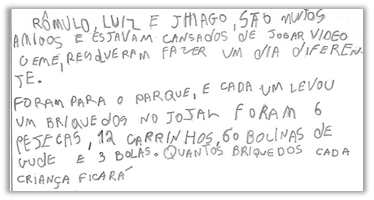 RÔMULO, LUIZ E JHIAGO, SÃO MUITOS
AMIGOS E ESJAVAM CANSADOS DE JOGAR VIDEO
GEME, RESOLVERAM FAZER UM DIA DIFEREN-
JE.
FORAM PARA O PARQUE, E CADA UM LEVOU
UM BRIQUEDOS NO JOJAL FORAM 6
PEJECAS, 12 CARRINHOS, 60 BOLINAS DE
GUDE E 3 BOLAS. QUANTOS BRIQUEDOS CADA
CRIANÇA FICARÁ